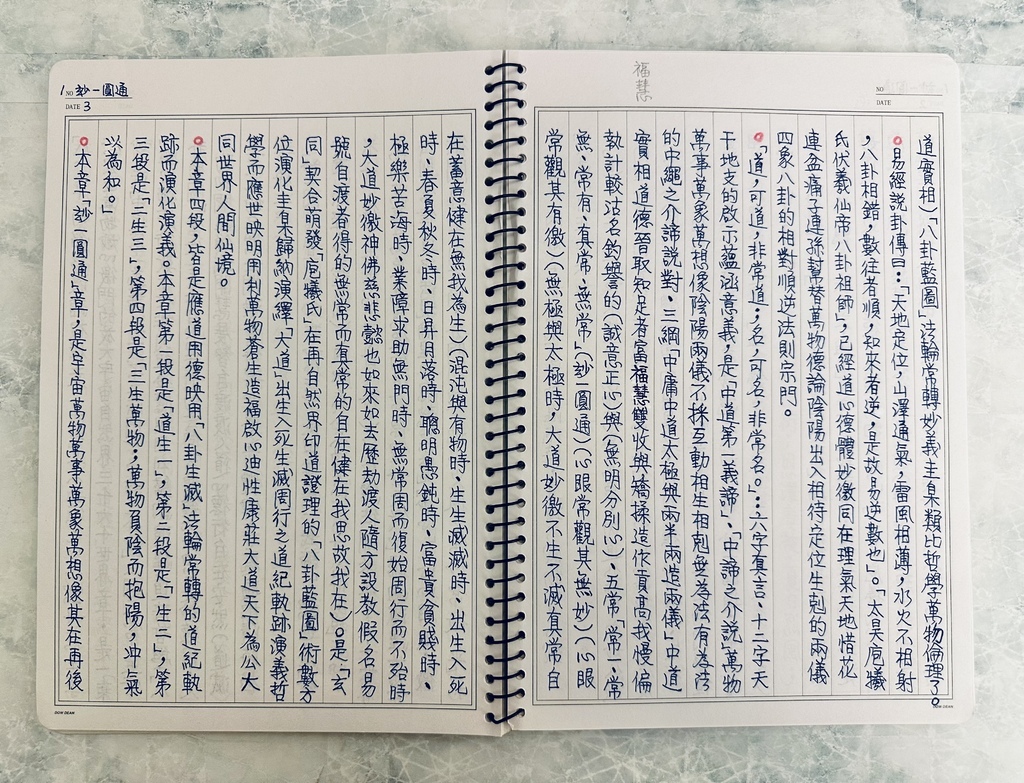 福慧
NO
DATE
道實相）「八卦藍圖」法輪常轉妙義主臬類比哲學萬物倫理了。
易經說卦傳曰：「天地定位，山澤通氣，雷風相薄，水火不相射
，八卦相錯，數往者順，知來者逆，是故易逆數也」。「太昊庖犧
氏伏羲仙帝八卦祖師」，已經道心德體妙徼同在理氣天地惜花
連盆痛子連孫幫替萬物德論陰陽出入相待定位生剋的兩儀
四象八卦的相對順逆法則宗門。
「道，可道，非常道；名，可名，非常名。」…六字真言、十二字天
干地支的啟示蘊涵意義，是「中道第一義諦」、「中諦之介說」萬物
萬事萬象萬想像陰陽兩儀不採互動相生相剋世為法有為法
的中繩之介諦說對、三綱「中庸中道太極與兩半兩造兩儀」中道
實相道德晉取知足者富福慧雙收與矯揉造作貢高我慢偏
執計較沽名釣譽的（誠意正心與（無明分別心）、五常「常一、常
無、常有、真常、無常」（妙一圓通）（心眼常觀其無妙）（心眼
常觀其有徼）（無極與太極時，大道妙徼不生不滅真常自
1 NO 玅一圓通
DATE 3
在蓄意健在無我為生）（混沌與有物時、生生滅滅時、出生入死
時、春夏秋冬時、日昇月落時、聰明愚鈍時、富貴貧賤時、
極樂苦海時、業障求助無門時、無常周而復始周行而不殆時
，大道妙徼神佛慈悲懿也如來如去歷劫渡人隨方設教假名易
號自渡者得的無常而真常的自在健在我思故我在）。是「玄
同」契合萌發「庖犧氏」在再自然界印道證理的「八卦藍圖」術數方
位演化主臬歸納演繹「大道」出生入死生滅周行之道紀軌跡演義哲
學而應世映明用利萬物蒼生造福啟心迪性康莊大道天下為公大
同世界人間仙境。
本章四段，皆是應道用德映用「八卦生滅」法輪常轉的道紀軌
跡而演化演義。本章第一段是「道生一」，第二段是「一生二」，第
三段是「二生三」，第四段是「三生萬物；萬物負陰而抱陽，沖氣
以為和。」
本章「玅一圓通」章，是宇宙萬物萬事萬象萬想像其在再後